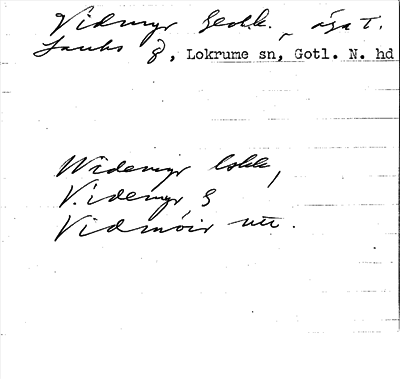 Vidmyr Geolk., äga t.
Lauks g, Lokrume sn, Gotl. N. hd
Widemyr lskk,
Videmyr g
Vidmöir utt.